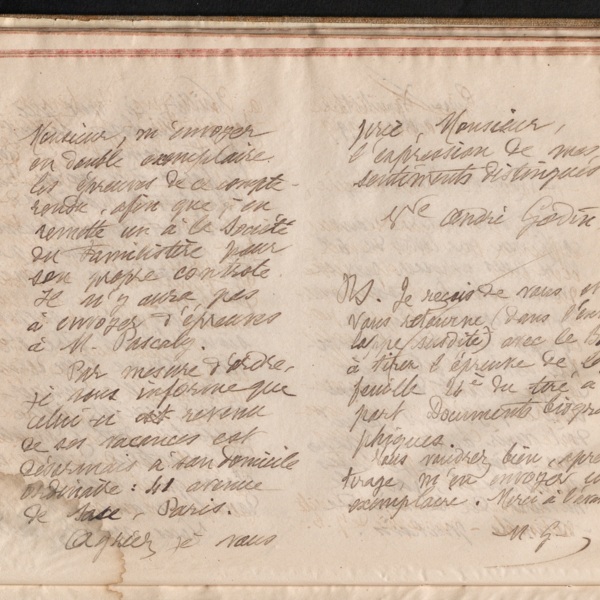 Monsieur, m'envoyer
en double exemplaire
les épreuves de ce compte-
rendu, afin que j'en
remette un à la Société
du Familistère pour
son propre contrôle.
Il n'y aura pas
à envoyer d'épreuves
à M. Pascaly.
Par mesure d'ordre,
je vous informe que
celui-ci est revenu
de ses vacances et
désormais à son domicile
ordinaire : 41 avenue
de Paris.
Agréez je vous
prie, Monsieur,
l'expression de mes
sentiments distingués
Vve André Godin
PS. Je reçois de vous
vous retourne (dans l'en
loppe susdite) avec le B
à tirer l'épreuve de la
feuille 24e du tome
part Documents biogra
phiques.
Vous voudrez bien, après
tirage, m'en envoyer un
exemplaire. Merci à l'avan
M. G